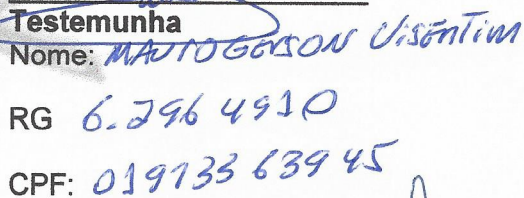 Testemunha
Nome: MAURO GERSON VISENTIM
RG 6.296 4910
CPF: 019133 639 45